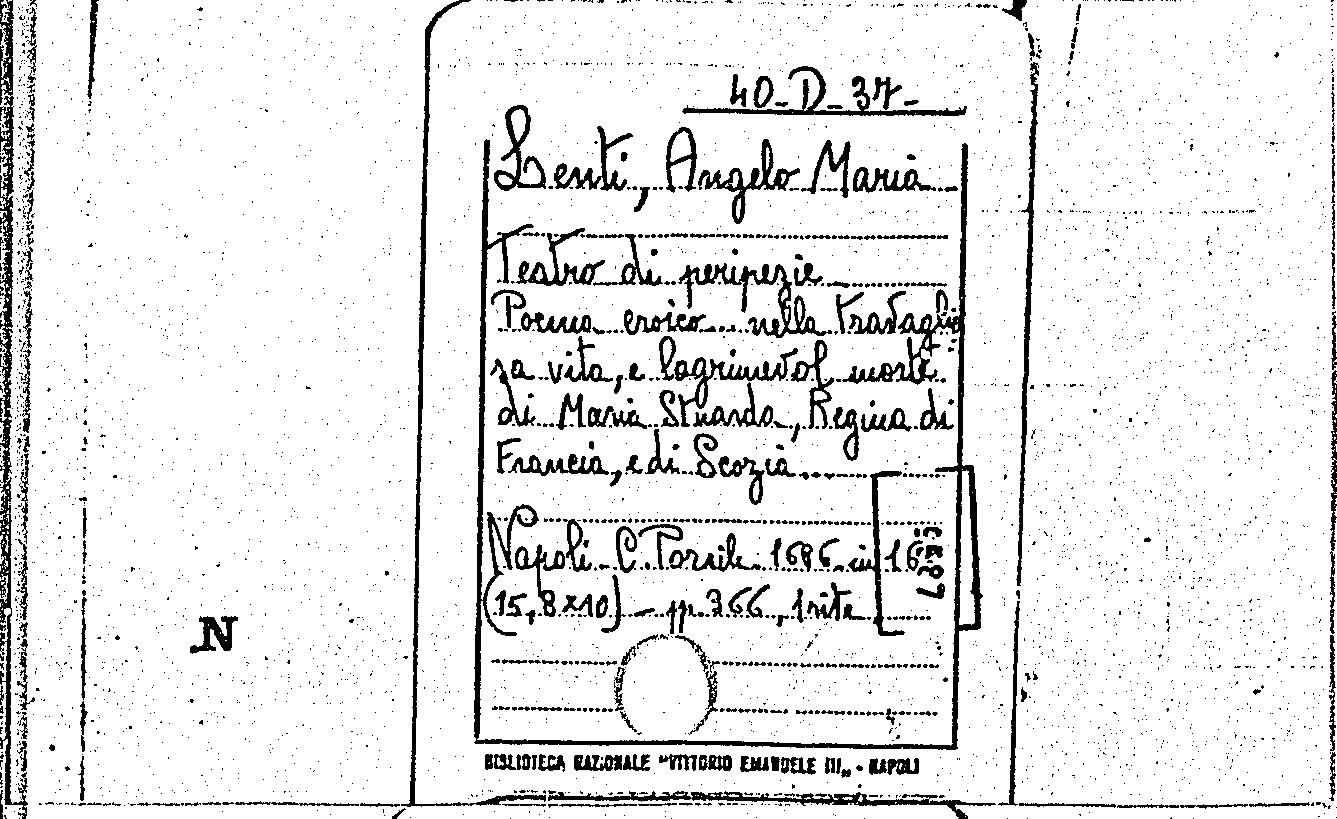 40-D-37-
Lenti, Angelo Maria
Teatro di peripezie
Poema eroico... nella travaglio
sa vita, e lagrimevol morte
di Maria Stuarda, Regina di
Francia, e di Scozia...
Napoli - C. Porsile - 1696 - in 16
(15,8x10) - pp. 366, 1 nite
N
BIBLIOTECA NAZIONALE "VITTORIO EMANUELE III„ - NAPOLI